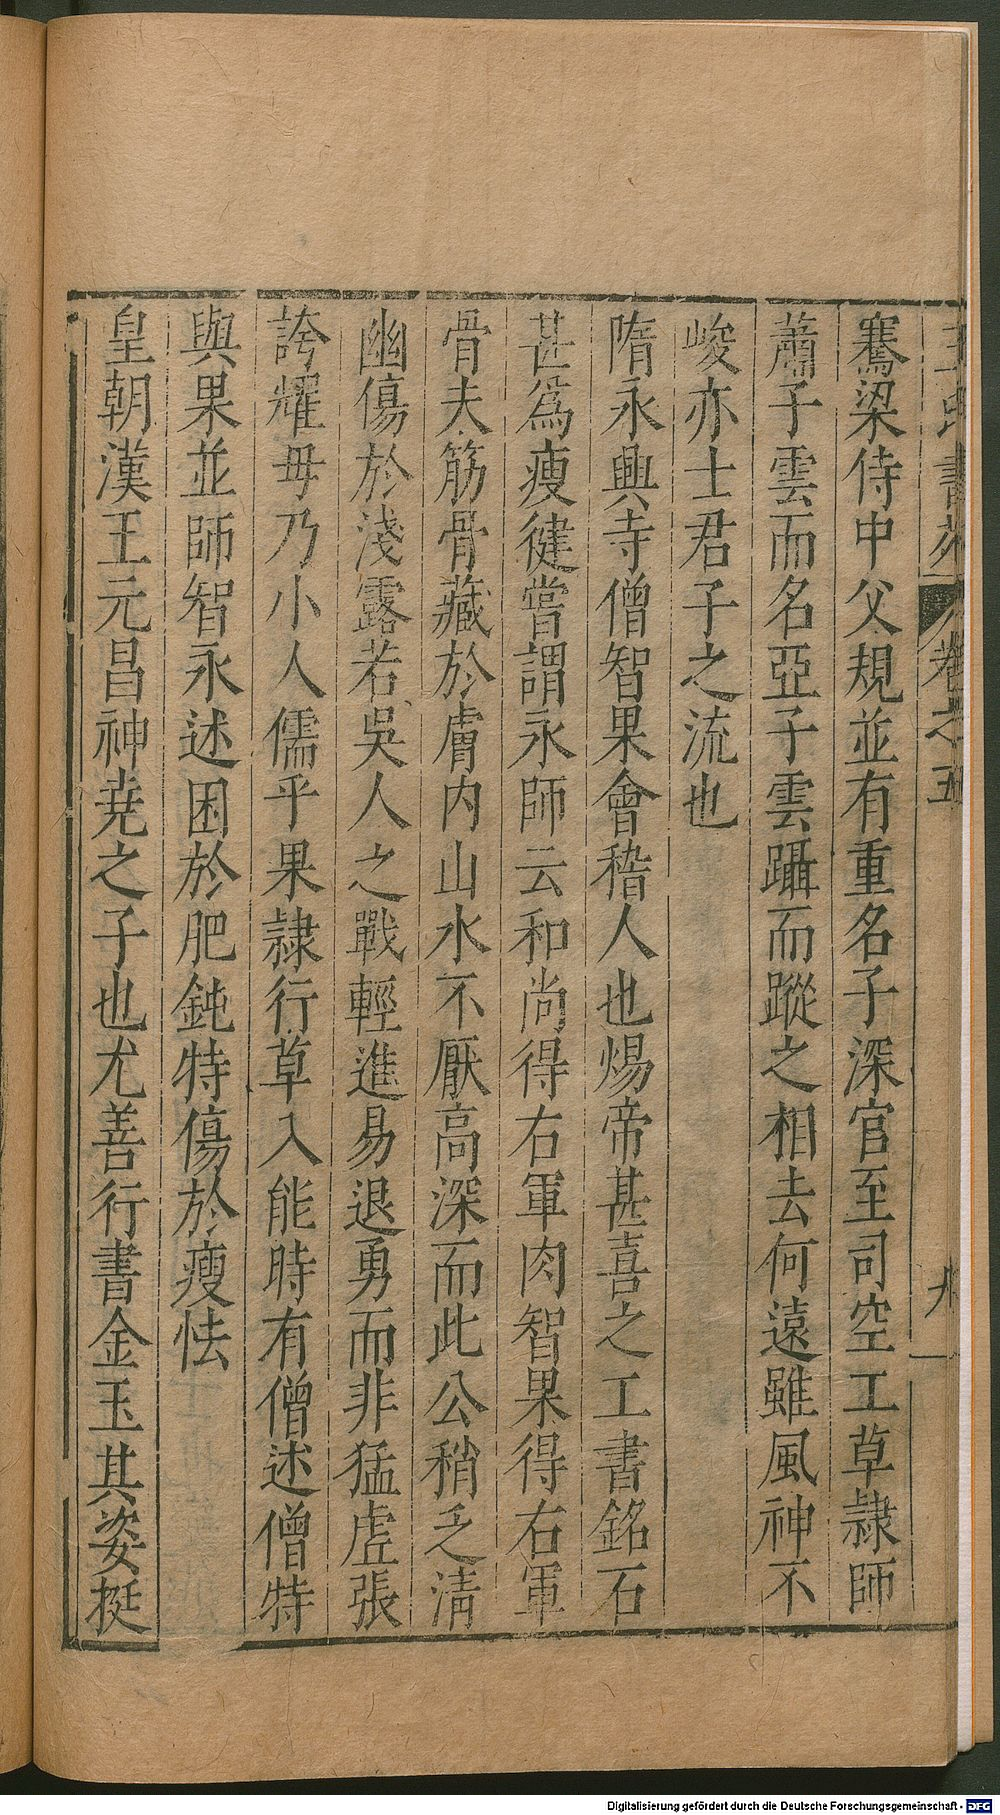 王氏書苑 卷之五 九
騫梁侍中父規並有重名子深官至司空工草隸師
蕭子雲而名亞子雲躡而蹤之相去何遠雖風神不
峻亦士君子之流也
隋永興寺僧智果會稽人也煬帝甚喜之工書銘石
甚爲瘦健嘗謂永師云和尚得右軍肉智果得右軍
骨夫筋骨藏於膚內山水不厭高深而此公稍乏清
幽傷於淺露若吳人之戰輕進易退勇而非猛虛張
誇耀毋乃小人儒乎果隸行草入能時有僧述僧特
與果並師智永述困於肥鈍特傷於瘦怯
皇朝漢王元昌神堯之子也尤善行書金玉其姿挺
Digitalisierung gefördert durch die Deutsche Forschungsgemeinschaft - DFG